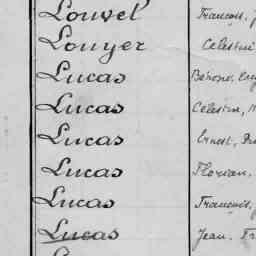 Louvel François, J
Louyer Celestin
Lucas
Lucas Celestin,
Lucas Ernest,
Lucas Florian.
Lucas François,
Lucas Jean. Fr